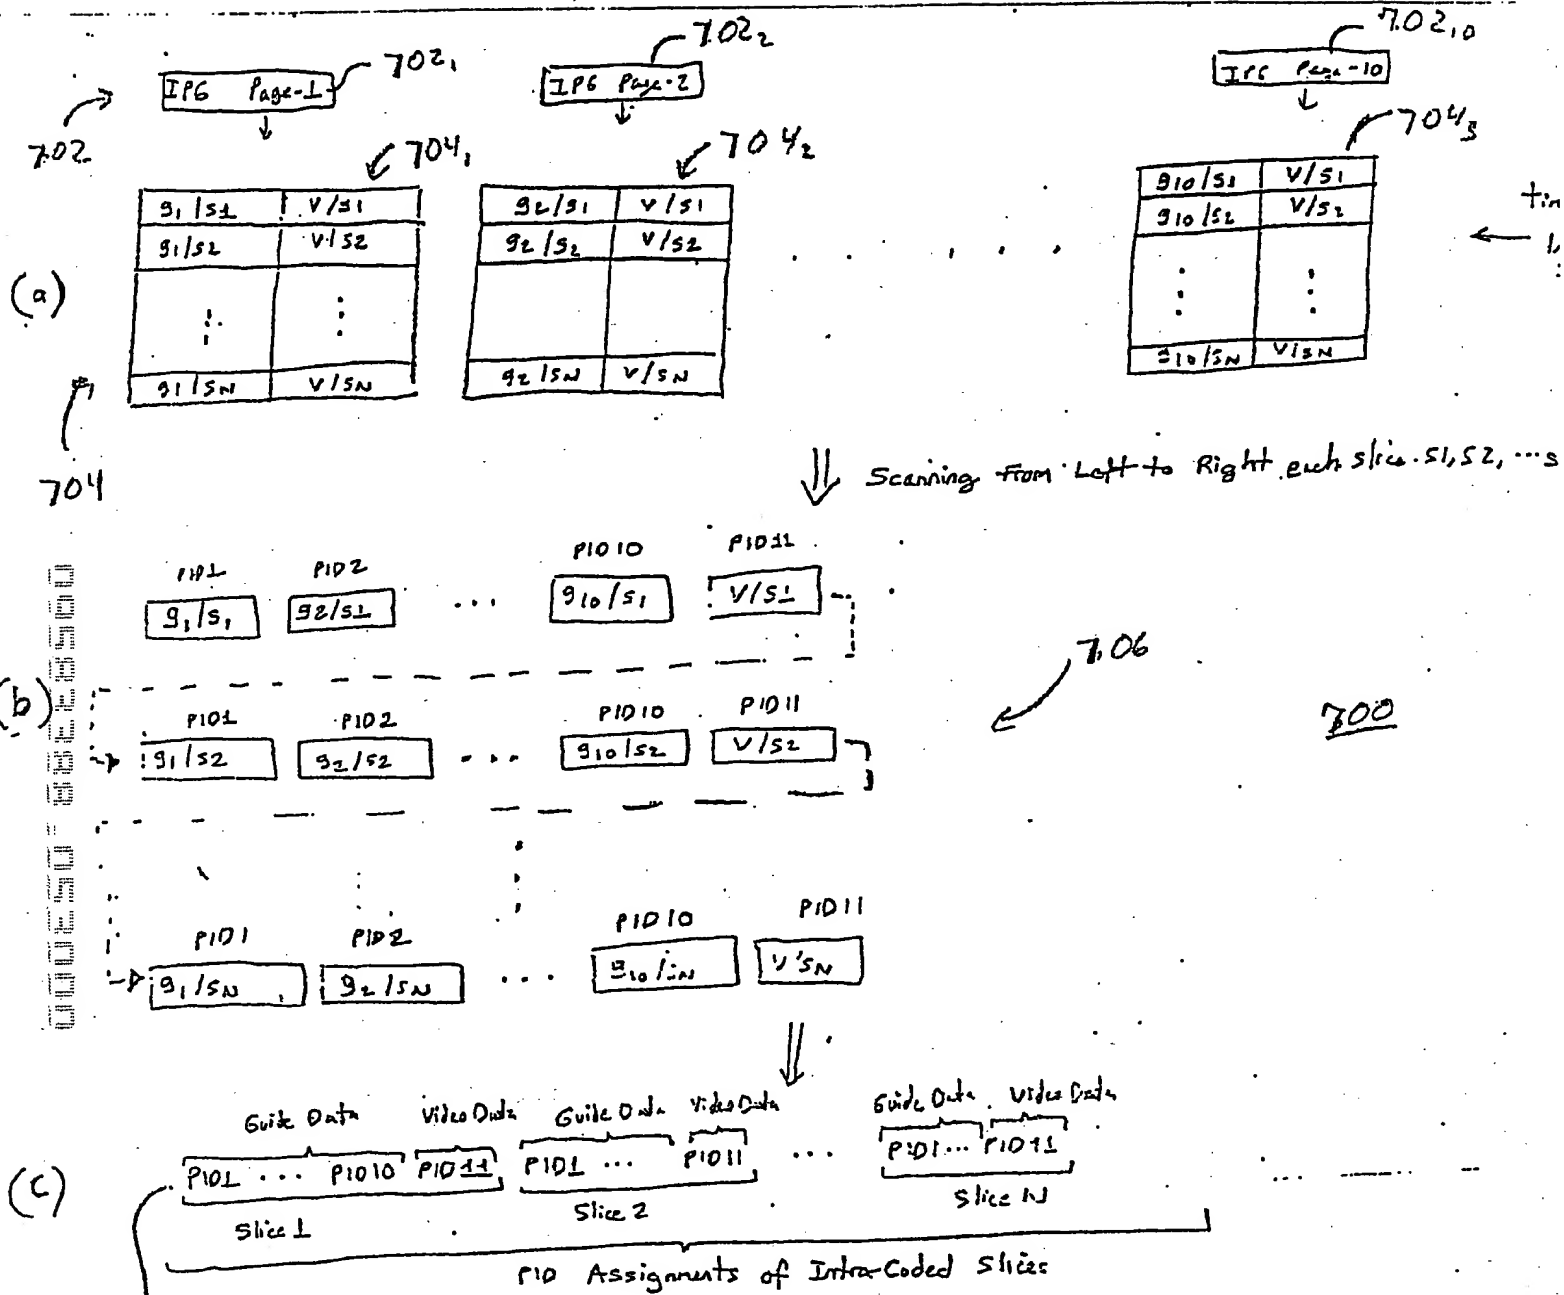 702₁ 702₂ 702₁₀
IPG Page-1 IPG Page-2 IPG Page-10
702 704₁ 704₂ 704₃
g₁/s1 V/s1 g2/s1 V/s1 g10/s1 V/s1
g1/s2 V/s2 g2/s2 V/s2 g10/s2 V/s2
(a)
g1/sN V/sN g2/sN V/sN g10/sN V/sN
704
Scanning From Left to Right each slice s1, s2, ...s
PID1 PID2 PID10 PID11
g₁/s₁ g2/s1 ... g10/s1 V/s1
706
(b)
PID1 PID2 PID10 PID11
700
g1/s2 g2/s2 ... g10/s2 V/s2
PID1 PID2 PID10 PID11
g1/sN g2/sN ... g10/sN V/sN
Guide Data Video Data Guide Data Video Data Guide Data Video Data
(c) PID1 ... PID10 PID11 PID1 ... PID11 ... PID1... PID11 ...
Slice 1 Slice 2 Slice N
PID Assignments of Intra-Coded Slices